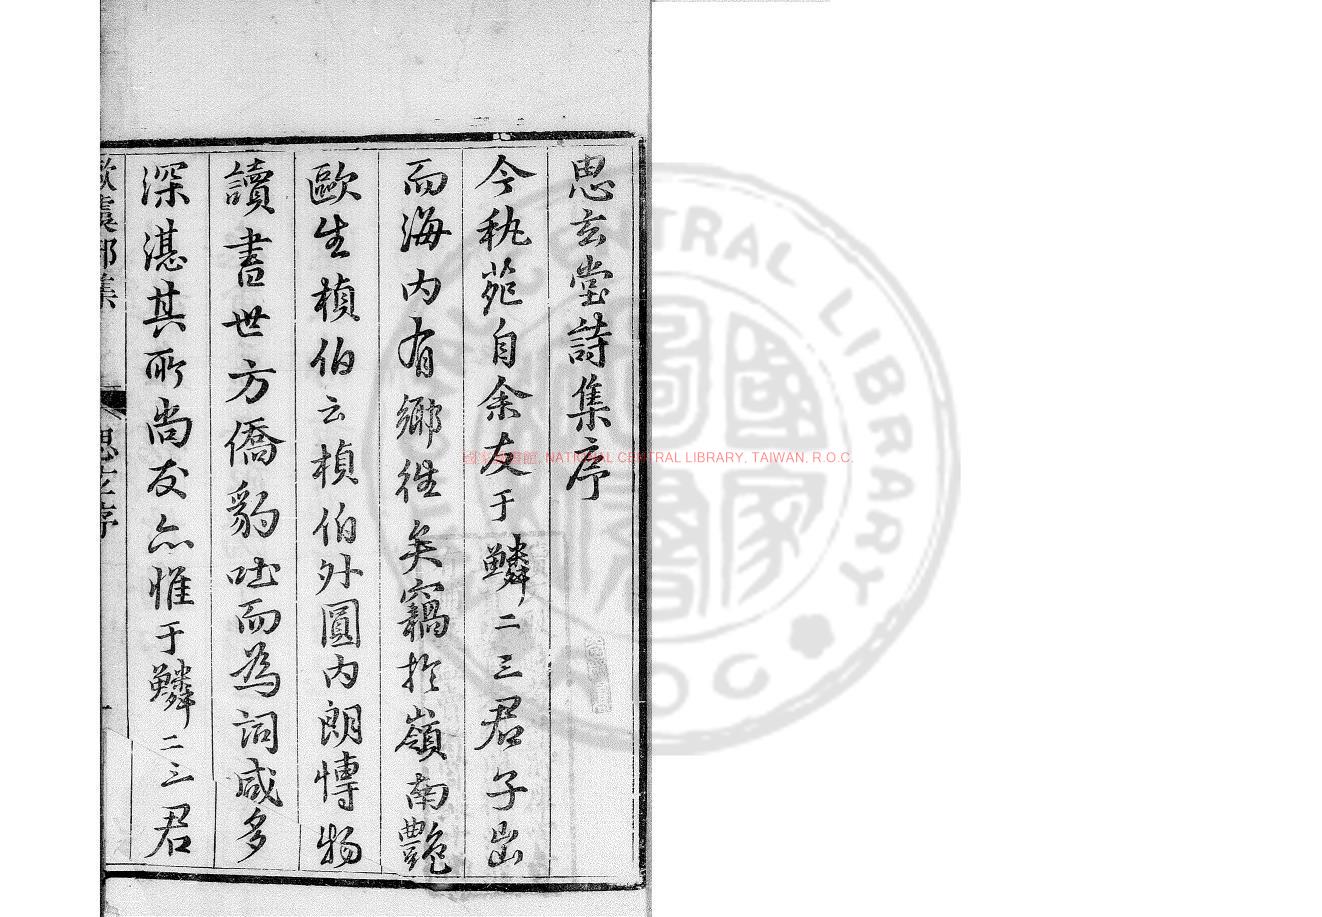 思玄堂詩集序
今執苑自余友于鱗二三君子出
而海内有鄉徃矣竊於嶺南艷
歐生楨伯云楨伯外圓内朗慱物
讀書世方僑豹吐而為詞咸多
深湛其所尚友亦惟于鱗二三君
歐虞部集
思玄序
一
國家圖書館, NATIONAL CENTRAL LIBRARY, TAIWAN, R.O.C.